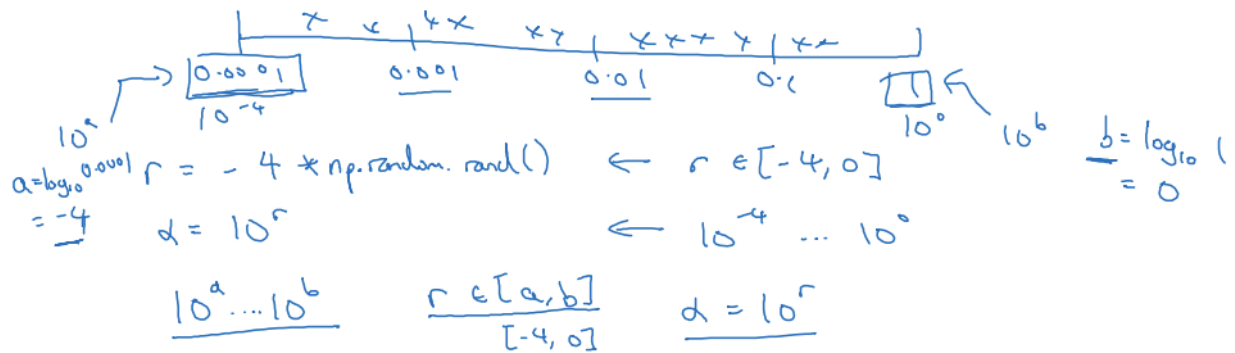 x x x x x x x x x x x x x
0.0001 0.001 0.01 0.1 1
10^-4 10^0
10^a 10^b b = log₁₀ 1
a = log₁₀ 0.0001 r = - 4 * np.random.rand() ← r ∈ [-4, 0] = 0
= -4 α = 10^r ← 10^-4 ... 10^0
10^a .... 10^b r ∈ [a, b] α = 10^r
[-4, 0]